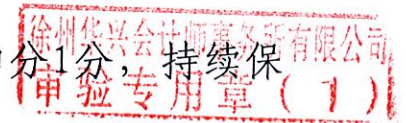 徐州华兴会计师事务所有限公司
分1分，持续保
审验专用章（1）